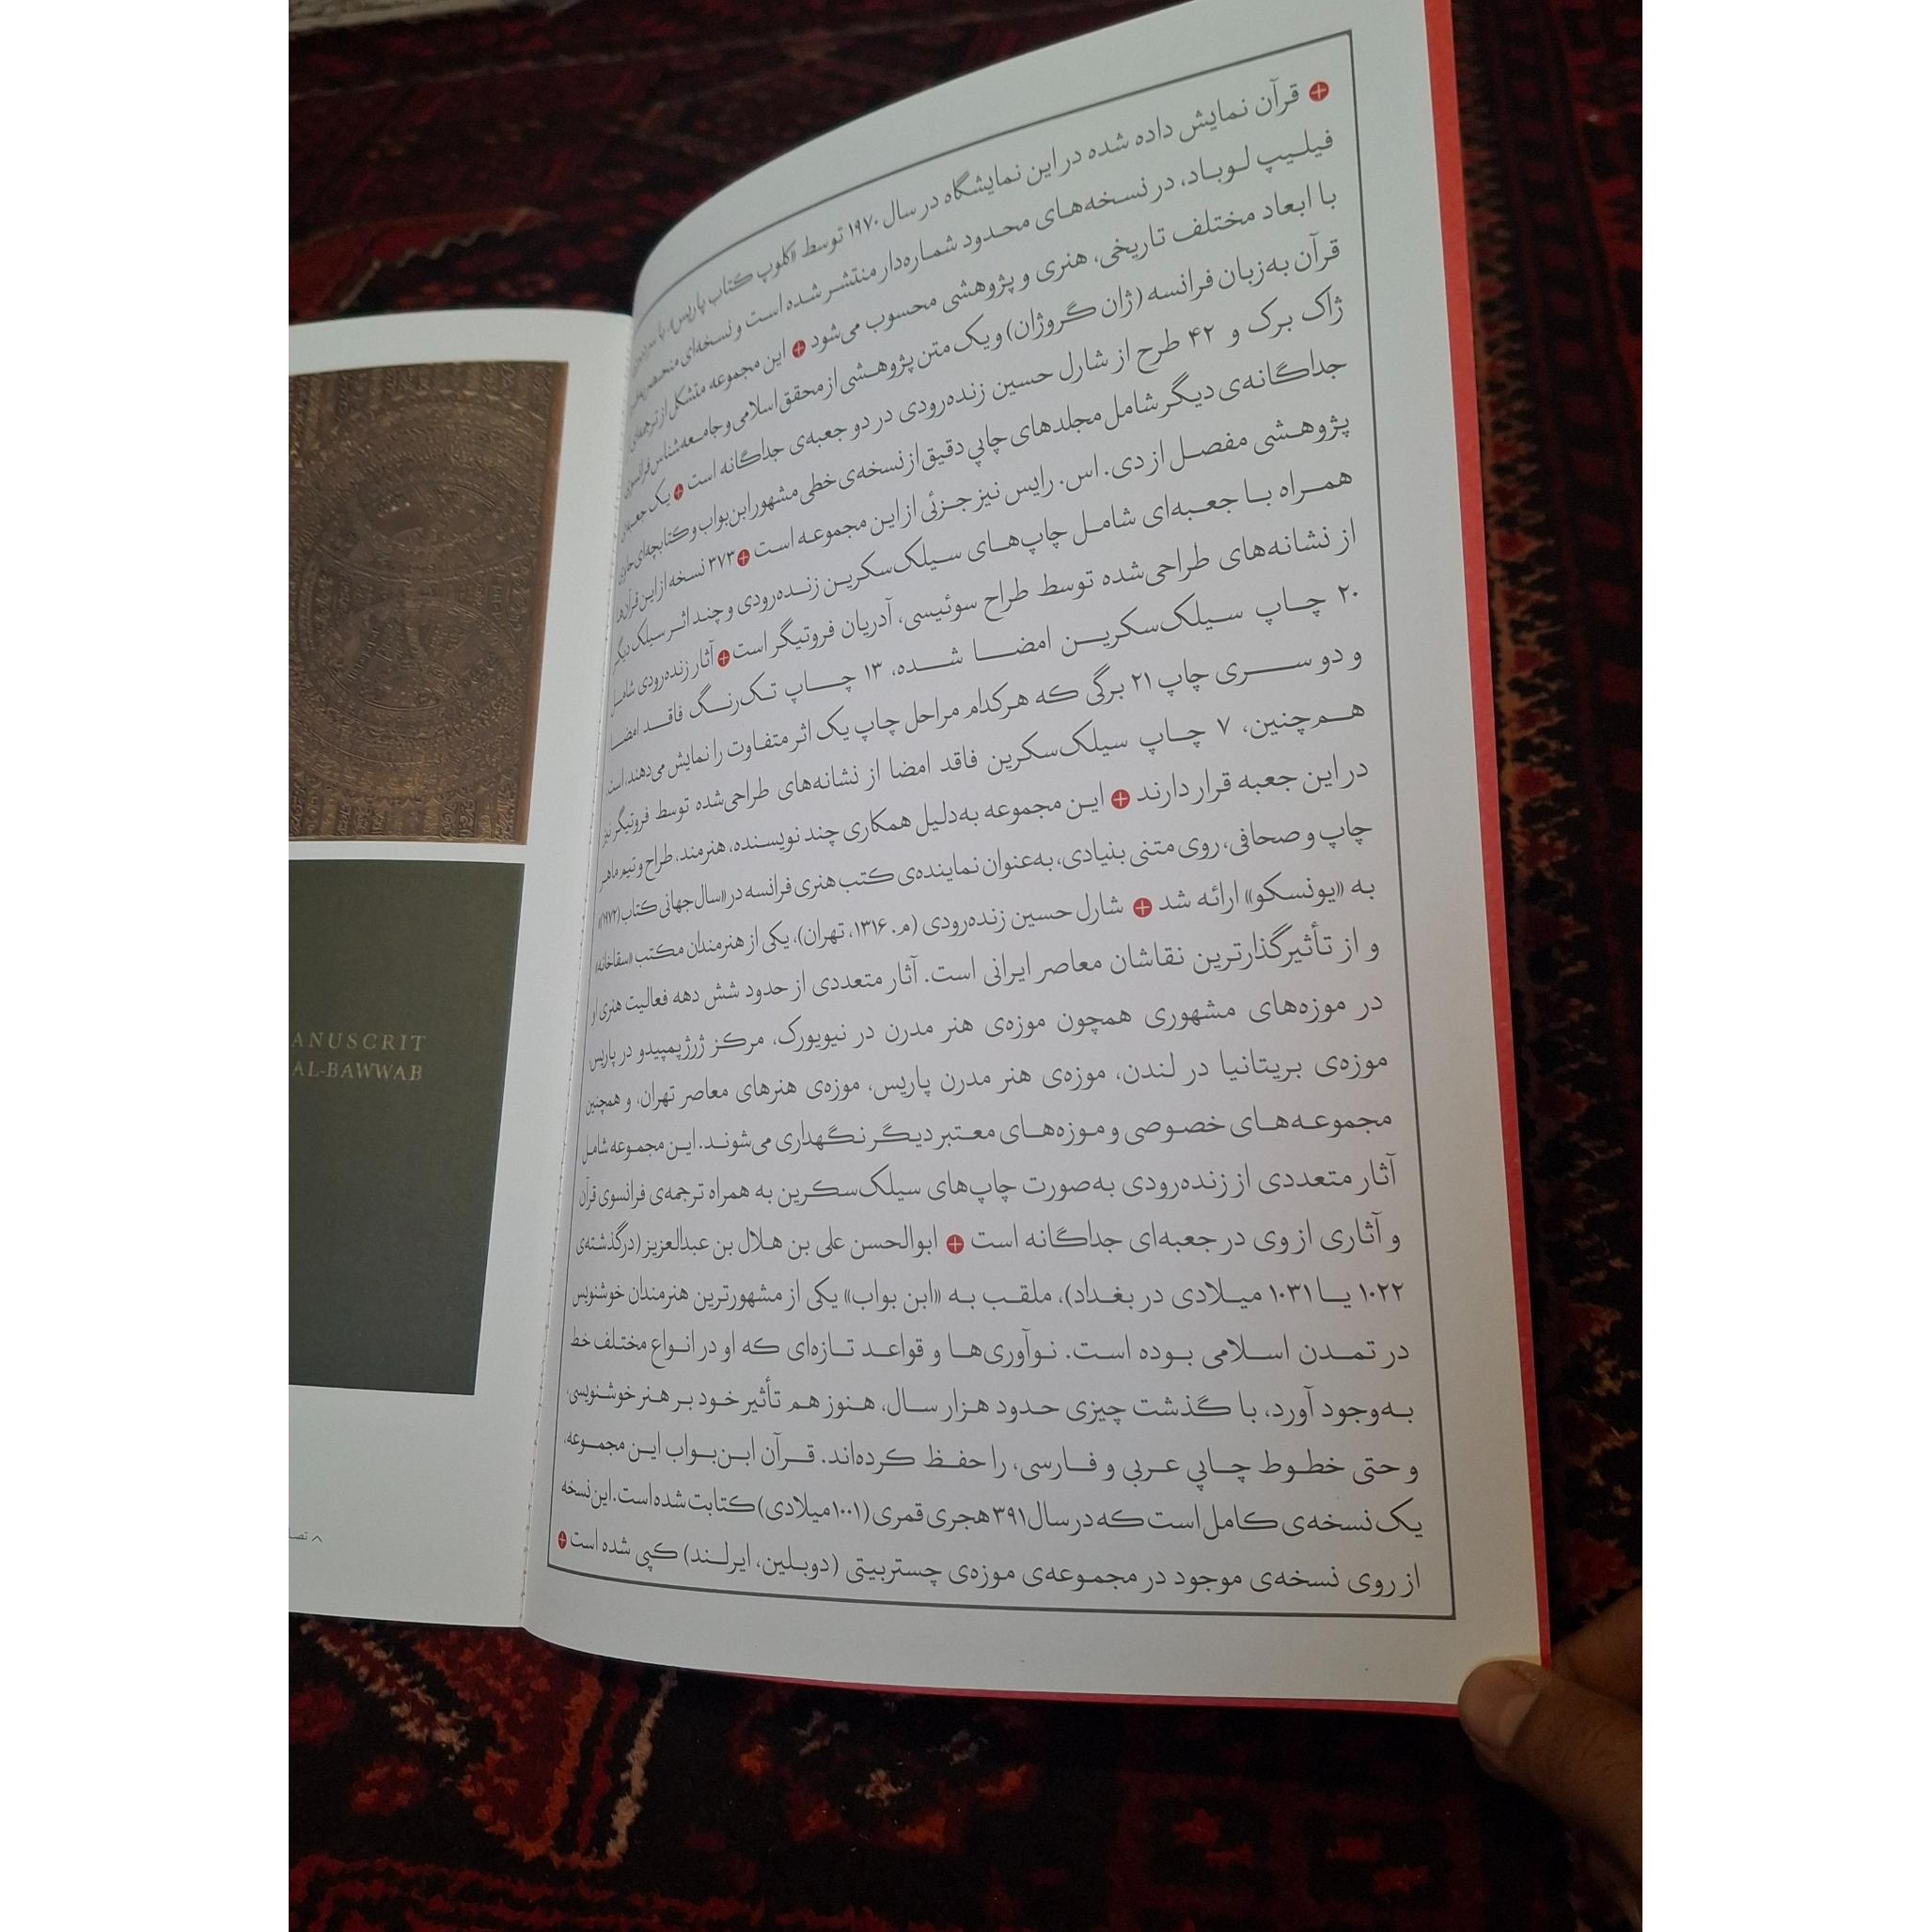 قرآن نمایش داده شده در این نمایشگاه در سال ۱۹۷۰ توسط «کلوپ کتاب پاریس»، با
فیلیپ لوباد، در نسخه‌های محدود شماره‌دار منتشر شده است و نسخه‌ای منحصر
با ابعاد مختلف تاریخی، هنری و پژوهشی محسوب می‌شود این مجموعه متشکل از ترجمه‌ی
قرآن به‌زبان فرانسه (ژان گروژان) و یک متن پژوهشی از محقق اسلامی و جامعه‌شناس فرانسوی
ژاک برک و ۴۲ طرح از شارل حسین زنده‌رودی در دو جعبه‌ی جداگانه است یک جعبه‌ی
جداگانه‌ی دیگر شامل مجلدهای چاپی دقیق از نسخه‌ی خطی مشهور ابن بواب و کتابچه‌ای حاوی
پژوهشی مفصل از دی. اس. رایس نیز جزئی از این مجموعه است ۳۷۳ نسخه از این قرآن‌ها
همراه با جعبه‌ای شامل چاپ‌های سیلک‌سکرین زنده‌رودی و چند اثر سیلک دیگر
از نشانه‌های طراحی‌شده توسط طراح سوئیسی، آدریان فروتیگر است آثار زنده‌رودی شامل
۲۰ چاپ سیلک‌سکرین امضا شده، ۱۳ چاپ تک‌رنگ فاقد امضا
و دو سری چاپ ۲۱ برگی که هرکدام مراحل چاپ یک اثر متفاوت را نمایش می‌دهند، است.
هم‌چنین، ۷ چاپ سیلک‌سکرین فاقد امضا از نشانه‌های طراحی‌شده توسط فروتیگر نیز
در این جعبه قرار دارند این مجموعه به‌دلیل همکاری چند نویسنده، هنرمند، طراح و تیم ماهر
چاپ و صحافی، روی متنی بنیادی، به‌عنوان نماینده‌ی کتب هنری فرانسه در «سال جهانی کتاب (۱۹۷۲)»
به «یونسکو» ارائه شد شارل حسین زنده‌رودی (م. ۱۳۱۶، تهران)، یکی از هنرمندان مکتب «سقاخانه»
و از تأثیرگذارترین نقاشان معاصر ایرانی است. آثار متعددی از حدود شش دهه فعالیت هنری او
در موزه‌های مشهوری همچون موزه‌ی هنر مدرن در نیویورک، مرکز ژرژپمپیدو در پاریس،
موزه‌ی بریتانیا در لندن، موزه‌ی هنر مدرن پاریس، موزه‌ی هنرهای معاصر تهران، و همچنین
مجموعه‌های خصوصی و موزه‌های معتبر دیگر نگهداری می‌شوند. این مجموعه شامل
آثار متعددی از زنده‌رودی به‌صورت چاپ‌های سیلک‌سکرین به همراه ترجمه‌ی فرانسوی قرآن
و آثاری از وی در جعبه‌ای جداگانه است ابوالحسن علی بن هلال بن عبدالعزیز (درگذشته‌ی
۱۰۲۲ یا ۱۰۳۱ میلادی در بغداد)، ملقب به «ابن بواب» یکی از مشهورترین هنرمندان خوشنویس
در تمدن اسلامی بوده است. نوآوری‌ها و قواعد تازه‌ای که او در انواع مختلف خط
به‌وجود آورد، با گذشت چیزی حدود هزار سال، هنوز هم تأثیر خود بر هنر خوشنویسی،
و حتی خطوط چاپی عربی و فارسی، را حفظ کرده‌اند. قرآن ابن‌بواب این مجموعه،
یک نسخه‌ی کامل است که در سال ۳۹۱ هجری قمری (۱۰۰۱ میلادی) کتابت شده است. این نسخه
از روی نسخه‌ی موجود در مجموعه‌ی موزه‌ی چستربیتی (دوبلین، ایرلند) کپی شده است
ANUSCRIT
AL-BAWWAB